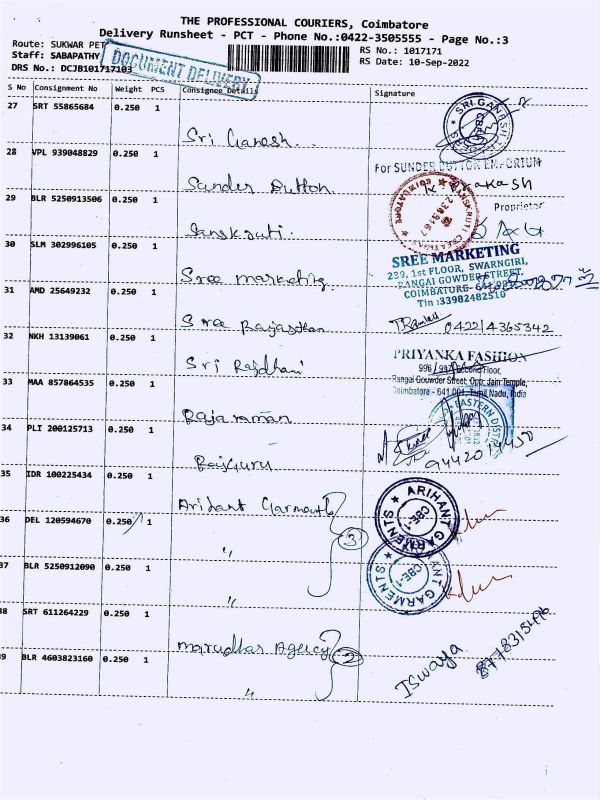 THE PROFESSIONAL COURIERS, Coimbatore
Delivery Runsheet - PCT - Phone No.:0422-3505555 - Page No.:3
Route: SUKWAR PET
RS No.: 1017171
Staff: SABAPATHY
RS Date: 10-Sep-2022
DRS No.: DCJB101717103
DOCUMENT DELIVERY
S No Consignment No Weight PCS Consignee Details Signature
27 SRT 55865684 0.250 1
Sri Ganesh
SRI GANESH
28 VPL 939048829 0.250 1
Sunder Button
For SUNDER BUTTON EMPORIUM
Proprietor
29 BLR 5250913506 0.250 1
Sanskruti.
SANSKRUTI CREATIONS
COIMBATORE
30 SLM 302996105 0.250 1
Sree marketing
SREE MARKETING
239, 1st FLOOR, SWARNGIRI,
RANGAI GOWDER STREET,
COIMBATORE-
Tin :33982482510
31 AMD 25649232 0.250 1
Sree Rajasthan
0422/4365342
32 NKH 13139061 0.250 1
Sri Rajdhani
PRIYANKA FASHION
Second Floor,
Rangai Gouwder Street, Opp: Jain Temple,
Coimbatore - 641 001, Tamil Nadu, India
33 MAA 857864535 0.250 1
Rajaraman
EASTERN
34 PLI 200125713 0.250 1
Rajguru
35 IDR 100225434 0.250 1
Aridant Garments
ARIHANT GARMENTS
CBE-1
36 DEL 120594670 0.250 1
"
3
37 BLR 5250912090 0.250 1
"
GARMENTS
CBE-1
38 SRT 611264229 0.250 1
Marudhar Agency
2
39 BLR 4603823160 0.250 1
"
ISwarya